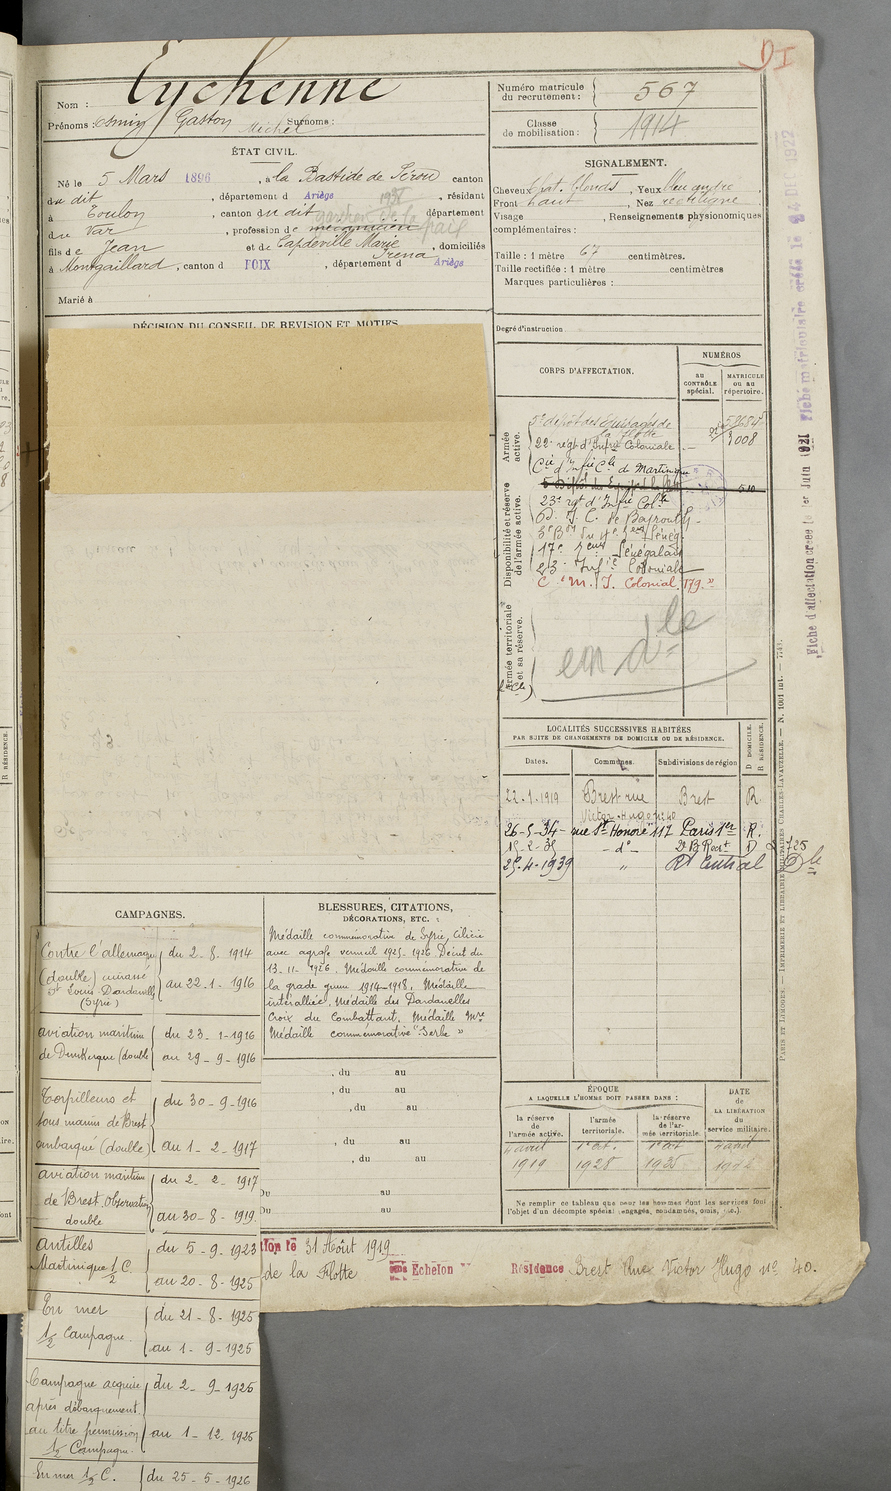 DI
Nom : Eychenne
Prénoms : Gaston Michel Surnoms :
ÉTAT CIVIL.
Né le 5 Mars 1896, à la Bastide de Sérou canton
du dit, département d Ariège, résidant
à Toulon, canton du dit département
du Var, profession de mécanicien
fils de Jean et de Capdeville Marie
Irena, domiciliés
à Montgaillard, canton d FOIX, département d Ariège
Marié à
DÉCISION DU CONSEIL DE REVISION ET MOTIFS.
Numéro matricule du recrutement : 567
Classe de mobilisation : 1914
SIGNALEMENT.
Cheveux chat. blonds, Yeux bleu
Front haut, Nez rectiligne
Visage , Renseignements physionomiques
complémentaires :
Taille : 1 mètre 67 centimètres.
Taille rectifiée : 1 mètre centimètres
Marques particulières :
Degré d'instruction
CORPS D'AFFECTATION.
NUMÉROS
au CONTRÔLE spécial.
MATRICULE ou au RÉPERTOIRE.
Armée active.
5e dépôt des Équipages de
la flotte
22e régt d'Infie Coloniale 9008
Cie d'Infie Cle de Martinique
Disponibilité et réserve de l'armée active.
5 Dépôt des Equip. de la flotte 510
23e rgt d'Infie Colle
D. I. C. de Beyrouth
17e Sénégalais
23e Infie Coloniale
C. M. I. Colonial 179.
Armée territoriale et sa réserve.
LOCALITÉS SUCCESSIVES HABITÉES
PAR SUITE DE CHANGEMENTS DE DOMICILE OU DE RÉSIDENCE.
Dates. Communes. Subdivisions de région D DOMICILE. R RÉSIDENCE.
22-1-1919 Brest rue Brest R.
Victor Hugo no 40
26-5-34 rue St Honoré 117 Paris 1er R.
15-2-35 - do - D
25-4-1939 " Rt Central
CAMPAGNES.
Contre l'allemagne du 2-8-1914
(double) cuirassé
St Louis Dardanelles au 22-1-1916
(Syrie)
aviation maritime du 23-1-1916
de Dunkerque (double) au 29-9-1916
Torpilleurs et du 30-9-1916
sous marins de Brest
embarqué (double) au 1-2-1917
aviation maritime du 2-2-1917
de Brest Observation
double au 30-8-1919
antilles du 5-9-1923
Martinique 1/2 C. au 20-8-1925
En mer du 21-8-1925
1/2 Campagne. au 1-9-1925
Campagne acquise du 2-9-1925
après débarquement
au titre permission au 1-12-1925
1/2 Campagne.
En mer 1/2 C. du 25-5-1926
BLESSURES, CITATIONS,
DÉCORATIONS, ETC. :
Médaille commémorative de Syrie, Cilicie
avec agrafe vermeil 1925-1926 Décret du
13-11-1926. Médaille commémorative de
la grande guerre 1914-1918. Médaille
interalliée. Médaille des Dardanelles
Croix du Combattant. Médaille Mre
Médaille commémorative "Serbe"
, du au
, du au
, du au
, du au
, du au
Du au
Du au
ÉPOQUE
A LAQUELLE L'HOMME DOIT PASSER DANS :
la réserve de l'armée active.
l'armée territoriale.
la réserve de l'armée territoriale.
DATE de LA LIBÉRATION du service militaire.
4 avril 1er oct. 1er oct. 4 avril
1919 1928 1935 1942
Ne remplir ce tableau que pour les hommes dont les services font
l'objet d'un décompte spécial (engagés, condamnés, omis, etc.).
le 31 Août 1919
de la Flotte Echelon Résidence Brest Rue Victor Hugo no 40.
Fiche d'affectation créée le 1er Juin 1921
Fiche matriculaire créée le 14 DEC 1922
PARIS ET LIMOGES. — IMPRIMERIE ET LIBRAIRIE MILITAIRES CHARLES-LAVAUZELLE. — N. 1001 int. — 7743.